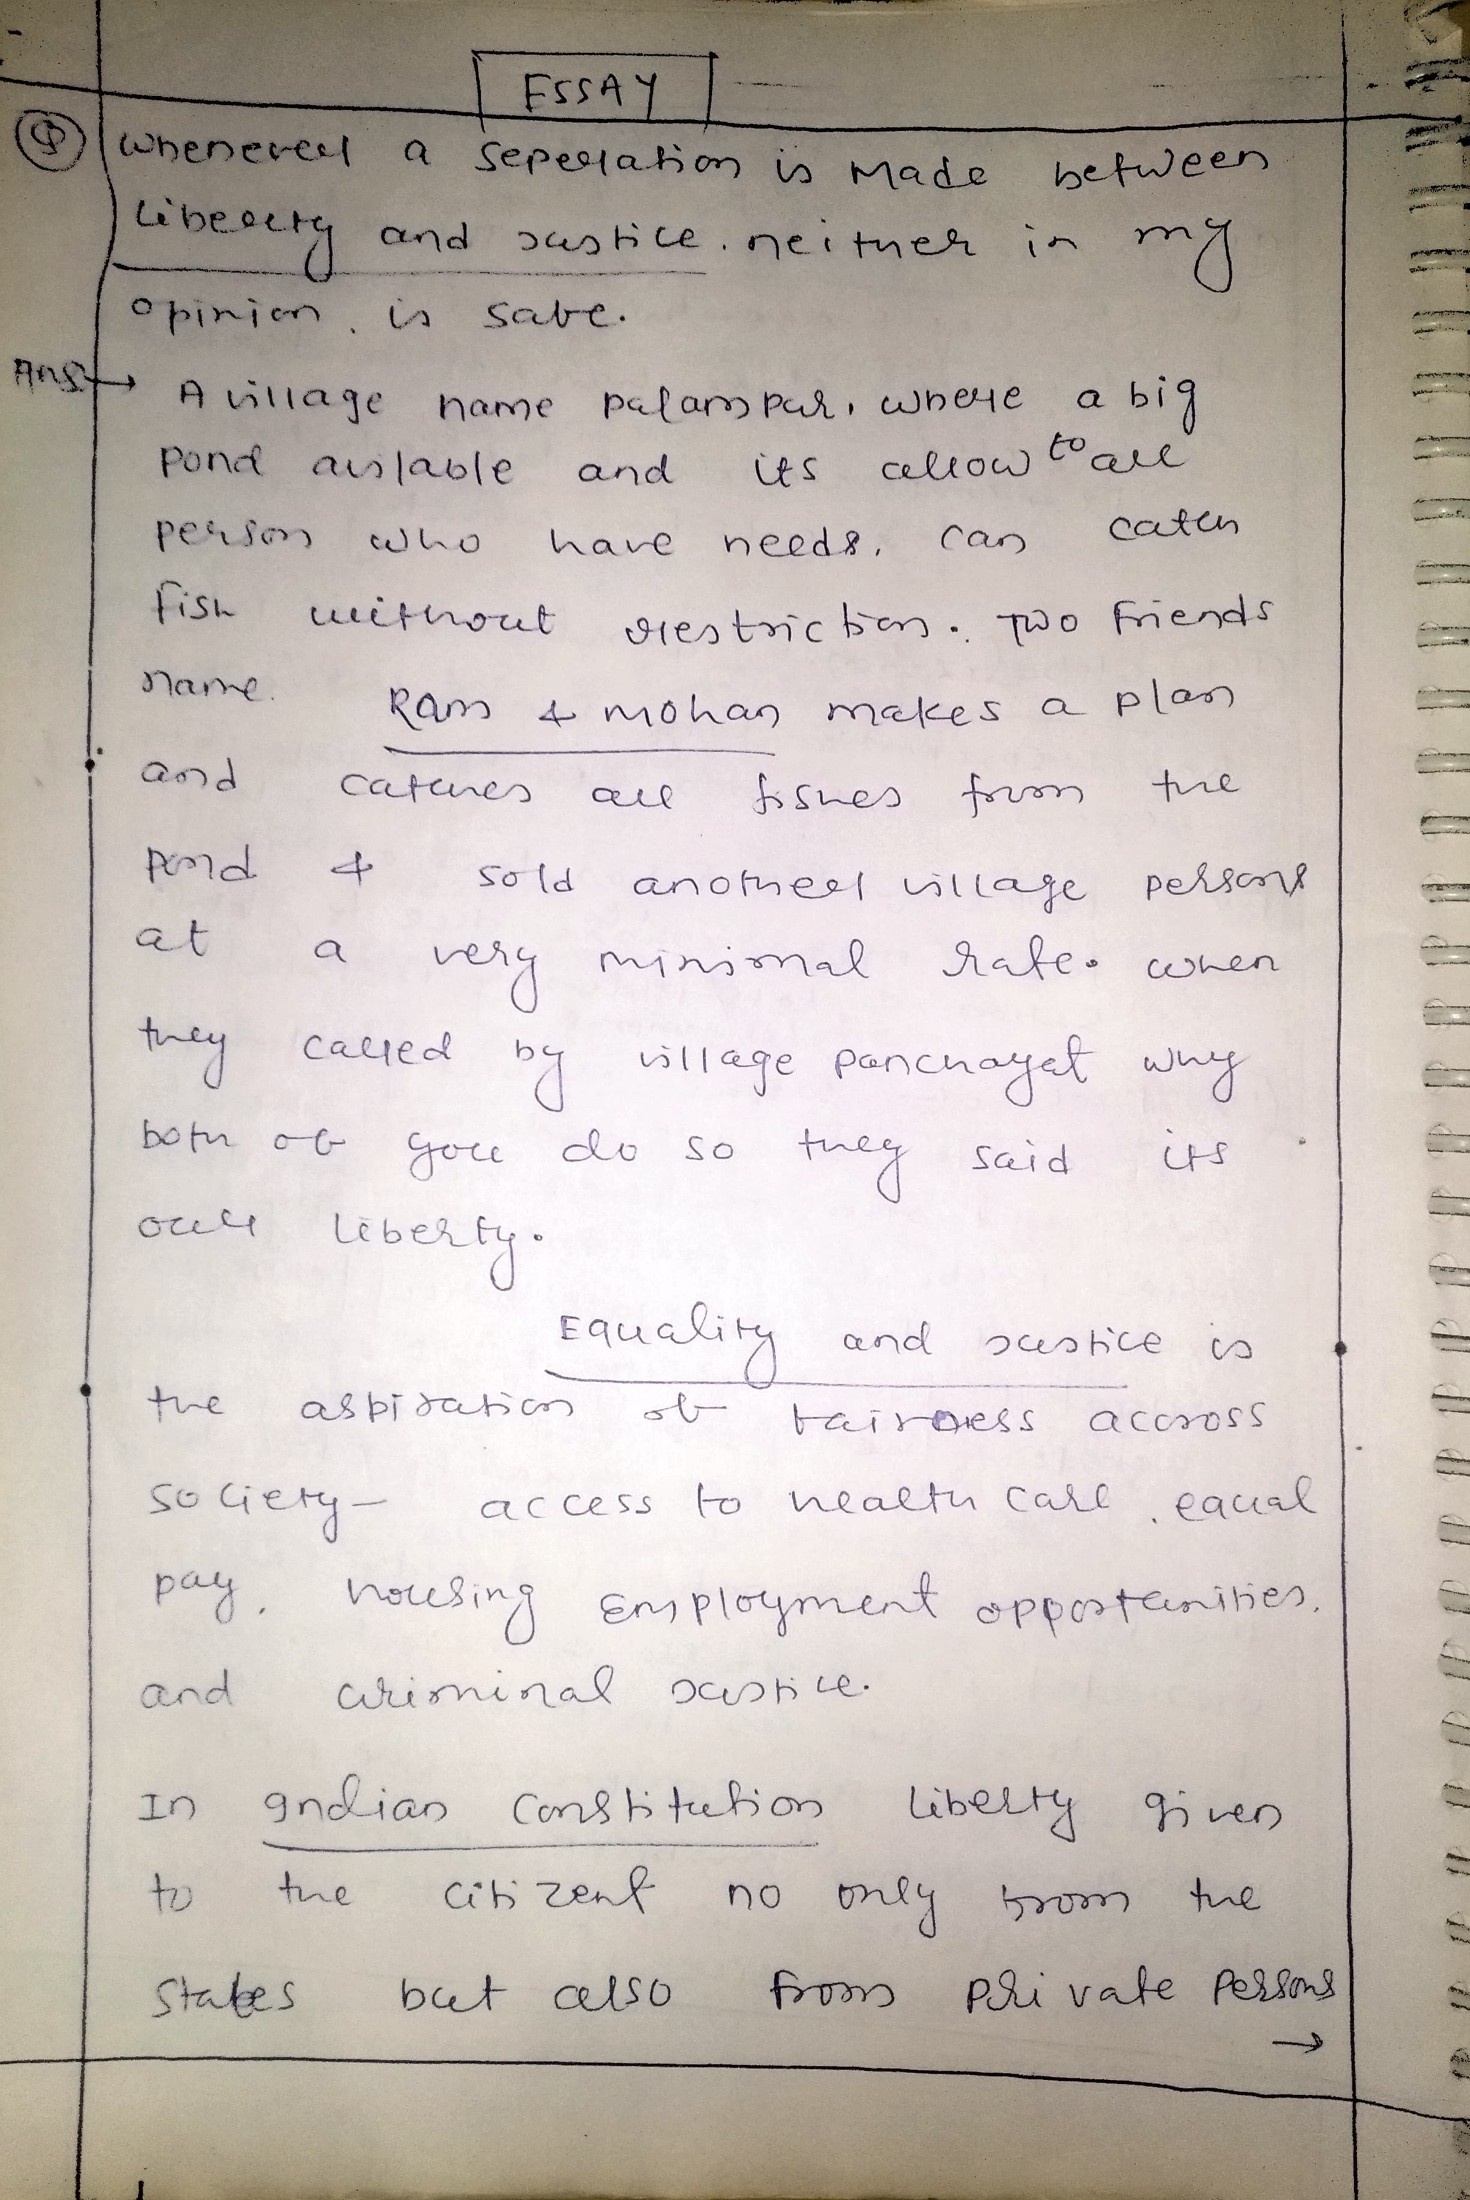 ESSAY
Q Whenever a seperation is Made between
liberty and Justice. neither in my
opinion, is safe.
Ans→ A village name palampur, where a big
pond avilable and its allow to all
person who have needs, can catch
fish without restriction. Two friends
name. Ram & Mohan makes a plan
and catches all fishes from the
pond & sold another village persons
at a very minimal rate. when
they called by village panchayat why
both of you do so they said its
our liberty.
Equality and Justice is
the aspiration of fairness accross
society- access to health care, equal
pay, housing employment opportunities,
and criminal Justice.
In Indian Constitution liberty given
to the citizens no only from the
states but also from private persons
→